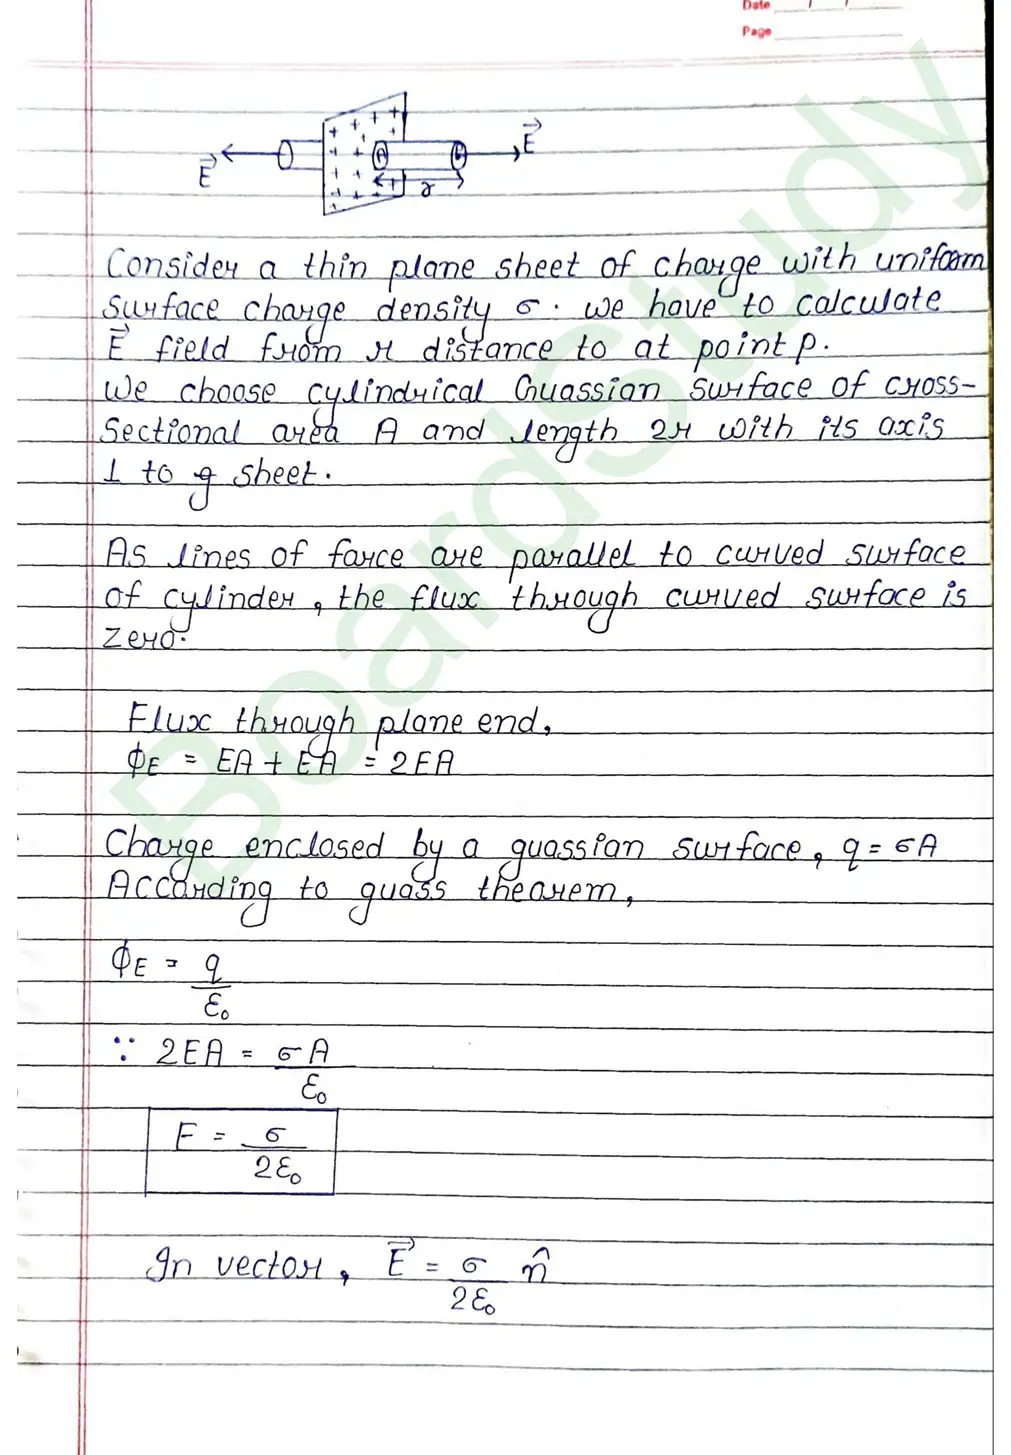 Date
Page
+ + + +
+ + +
+ + A
+ + +
+ + + +
E⃗
E⃗
r
Consider a thin plane sheet of charge with uniform
surface charge density σ. we have to calculate
E⃗ field from r distance to at point p.
We choose cylindrical Guassian surface of cross-
Sectional area A and length 2r with its axis
⊥ to g sheet.
As lines of force are parallel to curved surface
of cylinder, the flux through curved surface is
zero.
Flux through plane end,
ΦE = EA + EA = 2EA
Charge enclosed by a guassian surface, q = σA
According to guass theorem,
ΦE = q
ε₀
∵ 2EA = σA
ε₀
E = σ
2ε₀
In vector, E⃗ = σ n̂
2ε₀
BoardStudy